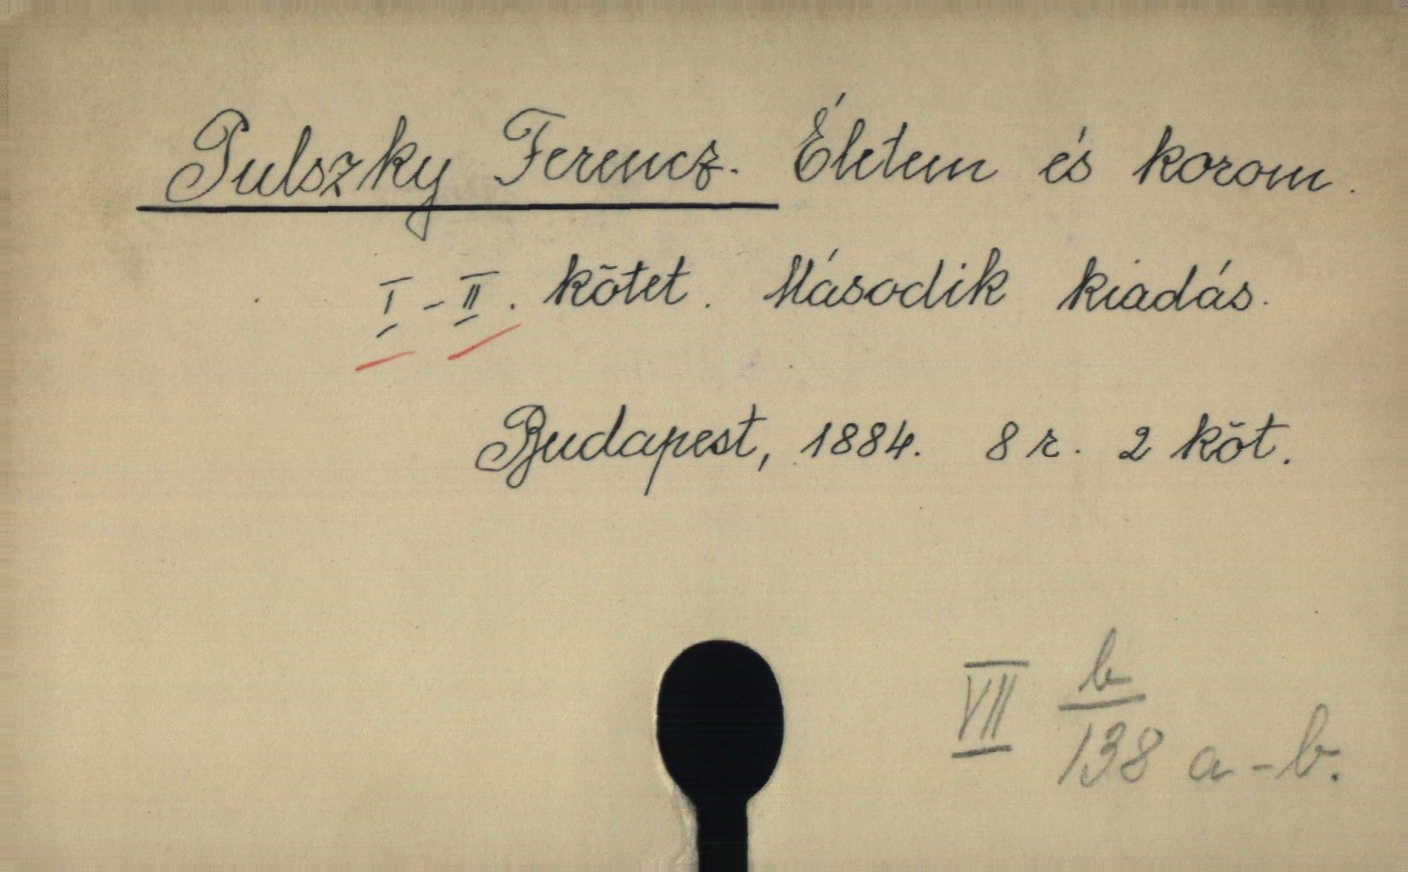 Pulszky Ferencz. Életem és korom.
I-II. kötet. Második kiadás.
Budapest, 1884. 8 r. 2 köt.
VII b/138 a-b.